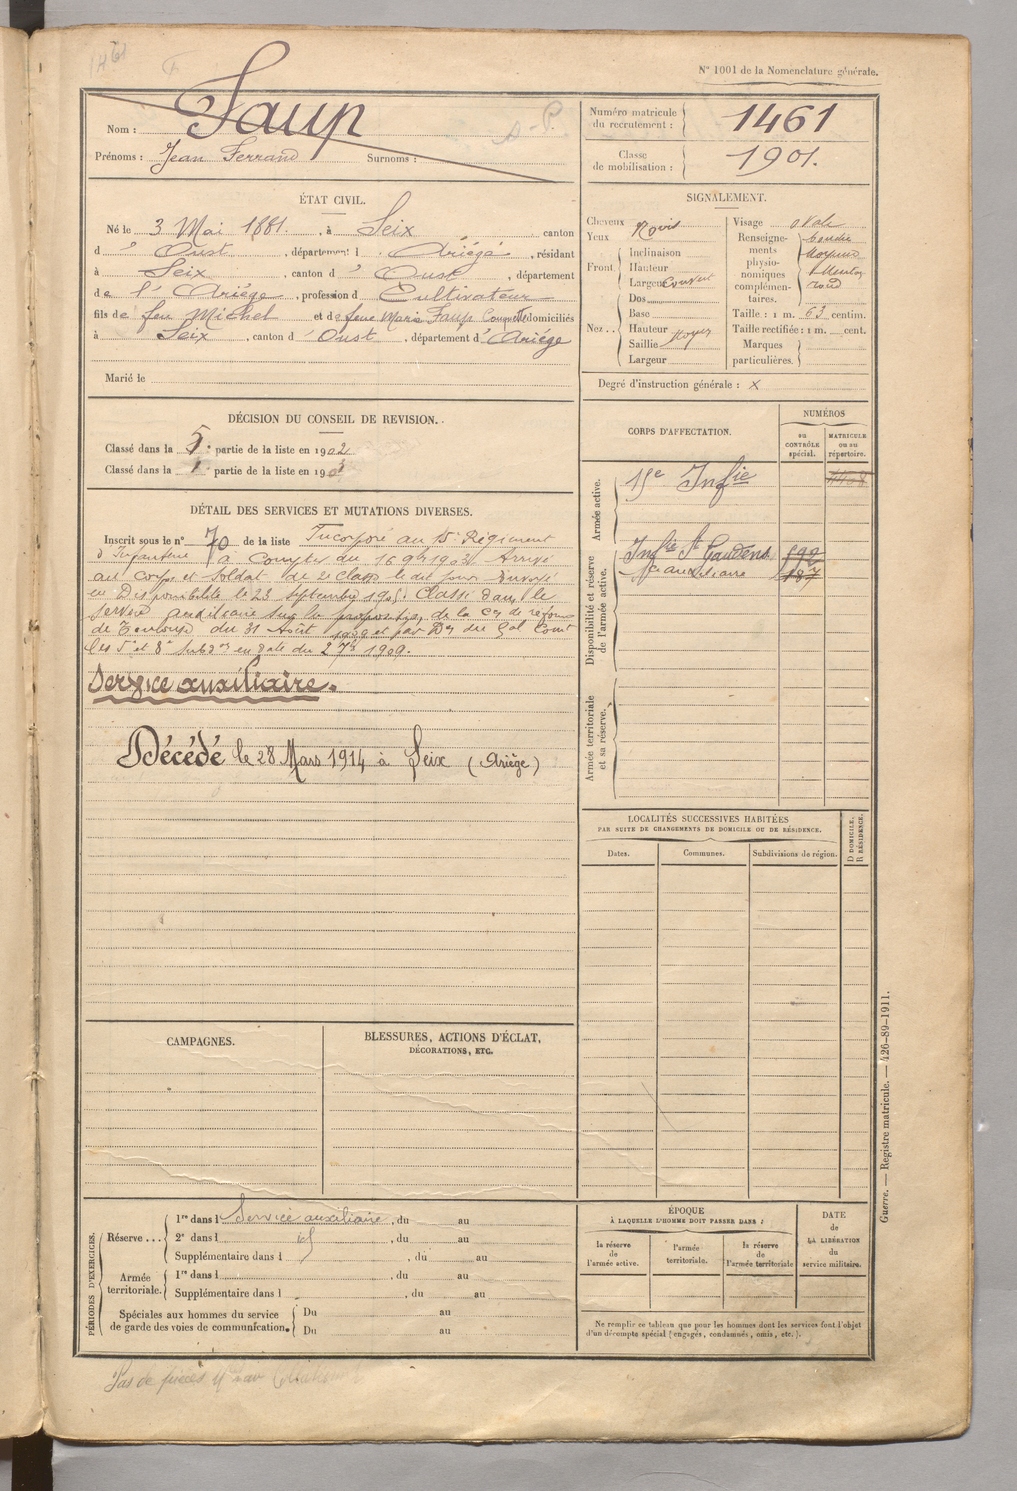 1461
N° 1001 de la Nomenclature générale.
Nom : Faup
Prénoms : Jean Ferrand Surnoms :
Numéro matricule du recrutement : 1461
Classe de mobilisation : 1901.
ÉTAT CIVIL.
Né le 3 Mai 1881. , à Seix , canton
d' Oust , département d Ariège , résidant
à Seix , canton d' Oust , département
de l'Ariège , profession d Cultivateur
fils de feu Michel et de feue Marie Faup domiciliés
à Seix , canton d' Oust , département d' Ariège
Marié le
SIGNALEMENT.
Cheveux Noirs
Yeux
Front Inclinaison
Hauteur
Largeur Couvert
Nez Dos
Base
Hauteur
Saillie Moyen
Largeur
Visage ovale
Renseignements physionomiques complémentaires. bouche moyenne Menton rond
Taille : 1 m. 63 centim.
Taille rectifiée : 1 m. cent.
Marques particulières.
Degré d'instruction générale : X
DÉCISION DU CONSEIL DE REVISION.
Classé dans la 5e partie de la liste en 1902
Classé dans la 1e partie de la liste en 1903
DÉTAIL DES SERVICES ET MUTATIONS DIVERSES.
Inscrit sous le n° 70 de la liste Incorporé au 15e Régiment
d'Infanterie à compter du 16 9bre 1903 Arrivé
au corps et soldat de 2e classe le dit jour Envoyé
en disponibilité le 23 Septembre 1905. Classé dans le
service auxiliaire sur la proposition de la Con de réforme
de Toulouse du 31 Août 1909 et par Don du Gal Comt
les 5e et 8e Subdons en date du 2 7bre 1909.
Service auxiliaire.
Décédé le 28 Mars 1914 à Seix (Ariège)
CORPS D'AFFECTATION.
NUMÉROS
au CONTRÔLE spécial.
MATRICULE ou au répertoire.
Armée active.
15e Infie
Disponibilité et réserve de l'armée active.
Infie St Gaudens
Sce auxiliaire
Armée territoriale et sa réserve.
LOCALITÉS SUCCESSIVES HABITÉES
PAR SUITE DE CHANGEMENTS DE DOMICILE OU DE RÉSIDENCE.
Dates.
Communes.
Subdivisions de région.
D DOMICILE,
R RÉSIDENCE.
CAMPAGNES.
BLESSURES, ACTIONS D'ÉCLAT,
DÉCORATIONS, ETC.
PÉRIODES D'EXERCICES.
Réserve ... 1re dans l Service auxiliaire , du au
2e dans l id , du au
Supplémentaire dans l , du au
Armée territoriale. 1re dans l , du au
Supplémentaire dans l , du au
Spéciales aux hommes du service de garde des voies de communication. Du au
Du au
ÉPOQUE
À LAQUELLE L'HOMME DOIT PASSER DANS :
la réserve de l'armée active.
l'armée territoriale.
la réserve de l'armée territoriale
DATE
de
LA LIBÉRATION
du
service militaire.
Ne remplir ce tableau que pour les hommes dont les services font l'objet
d'un décompte spécial (engagés, condamnés, omis, etc.).
Guerre. — Registre matricule. — 426-89-1911.
Pas de pièces